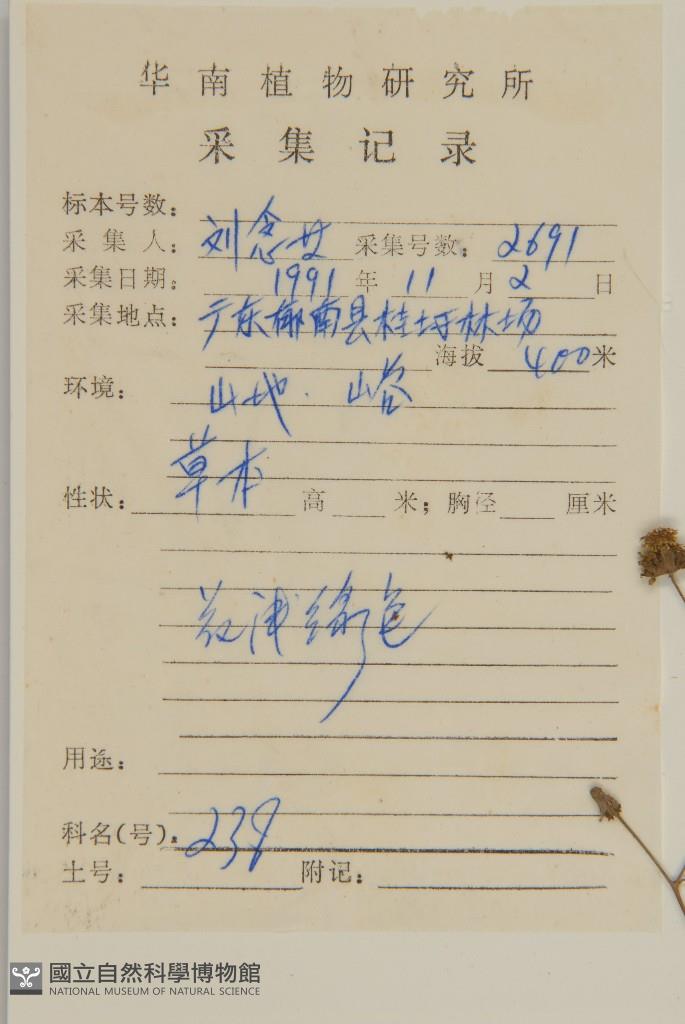 华南植物研究所
采集记录
标本号数:
采集人: 刘念 采集号数: 2691
采集日期: 1991年11月2日
采集地点: 广东郁南县桂圩林场
海拔400米
环境: 山地. 山谷
草本
性状: 高 米; 胸径 厘米
花 绿色
用途:
科名(号): 238
土号: 附记:
國立自然科學博物館
NATIONAL MUSEUM OF NATURAL SCIENCE